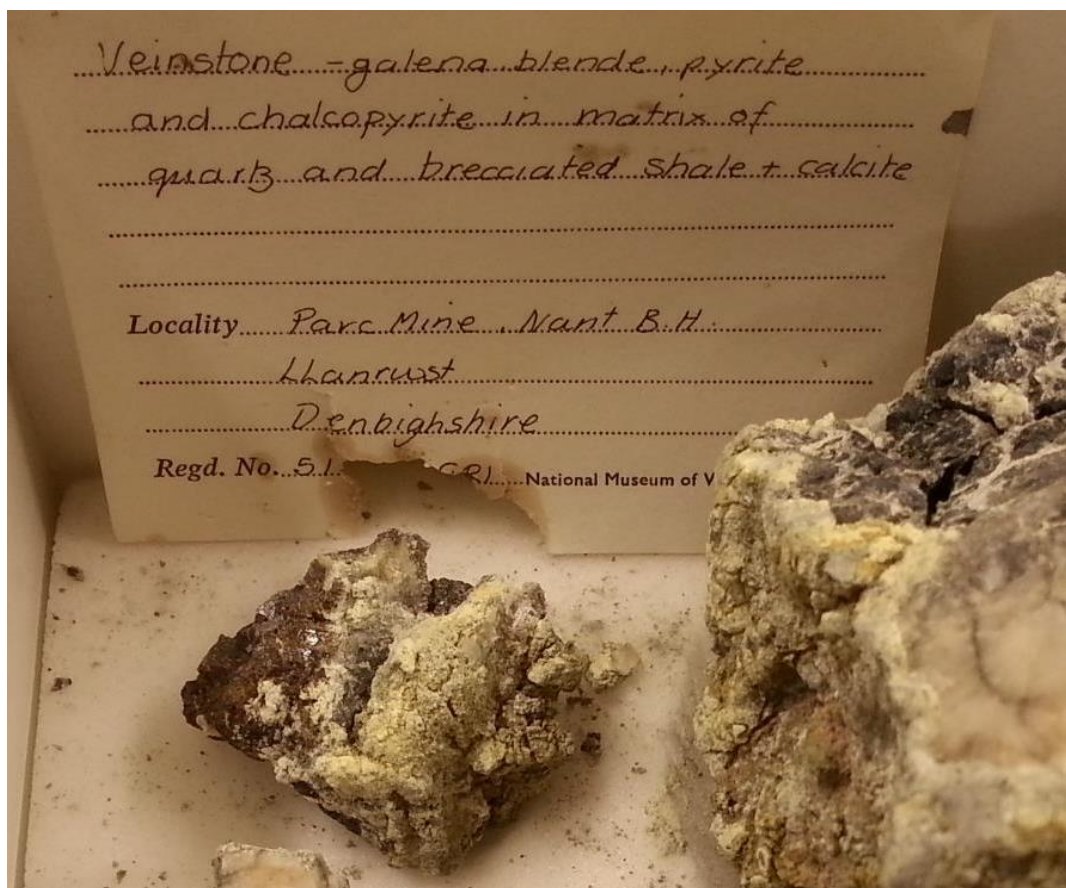 Veinstone - galena blende, pyrite
and chalcopyrite in matrix of
quartz and brecciated shale + calcite
Locality Parc Mine, Nant B.H.
Llanrwst
Denbighshire
Regd. No. 51. GR1 National Museum of